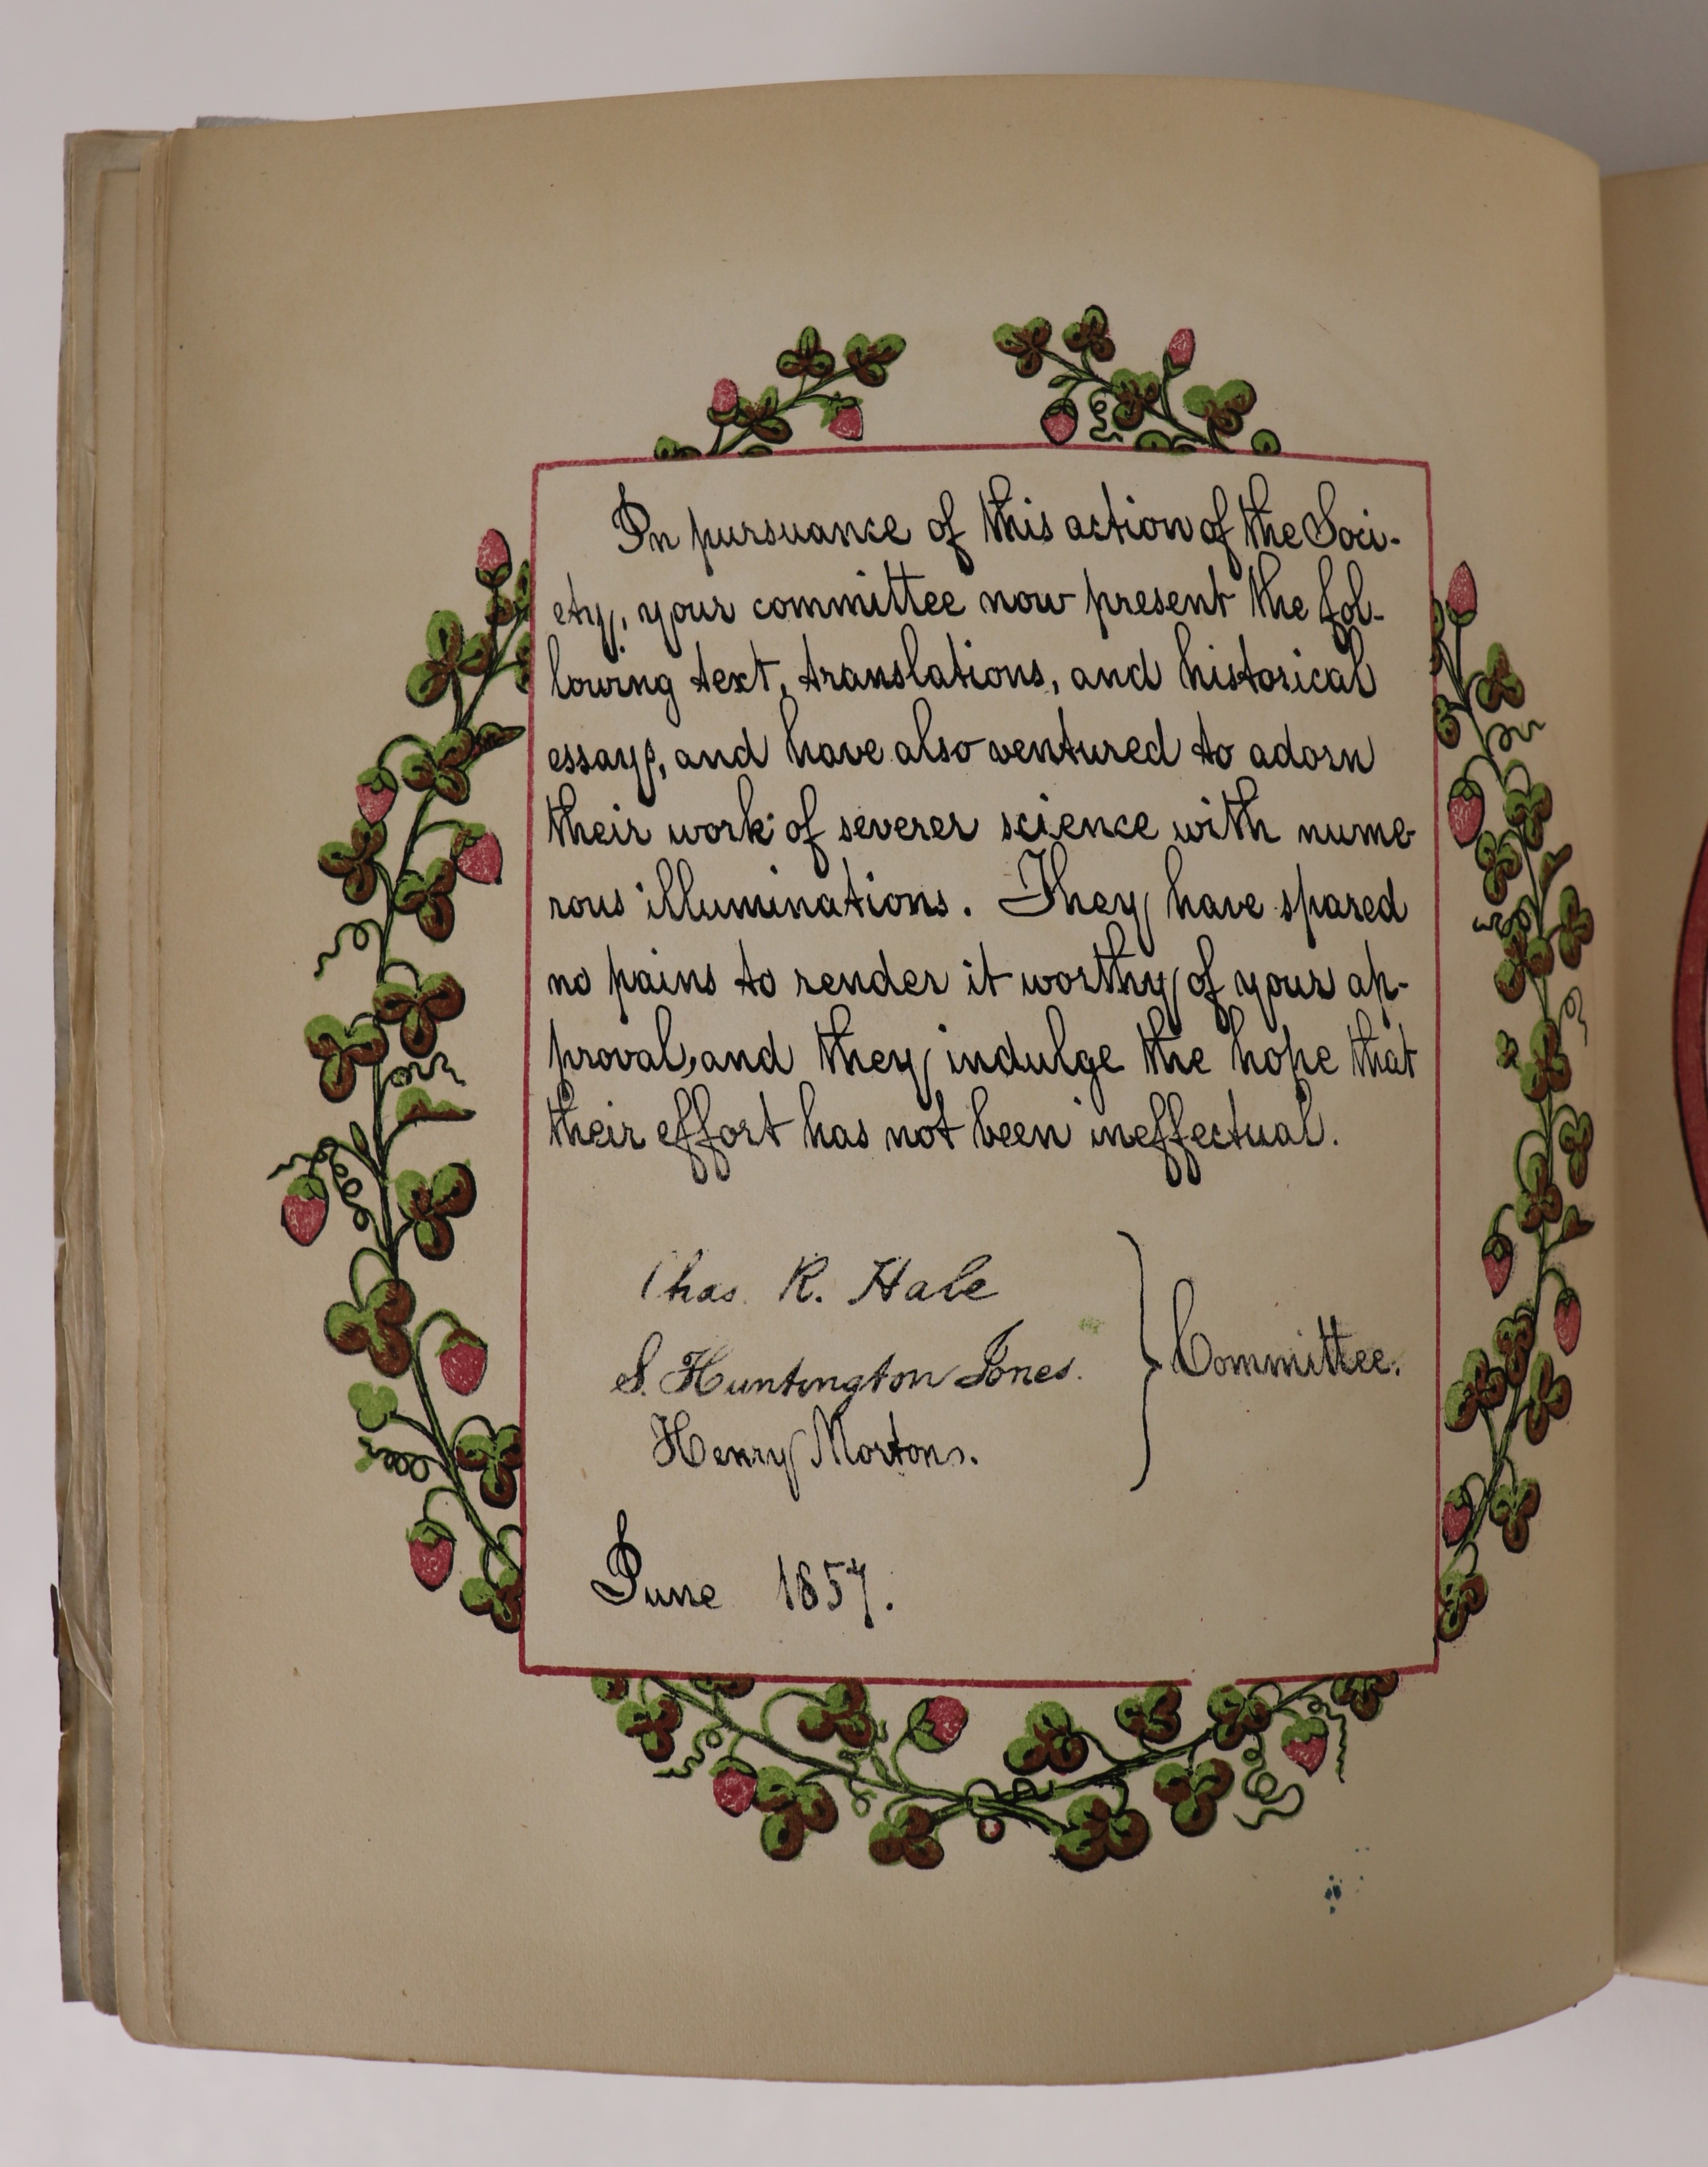 In pursuance of this action of the Soci-
ety, your committee now present the fol-
lowing text, translations, and historical
essays, and have also ventured to adorn
their work of severer science with nume-
rous illuminations. They have spared
no pains to render it worthy of your ap-
proval, and they indulge the hope that
their effort has not been ineffectual.
Chas. R. Hale
S. Huntington Jones.
Henry Morton.
Committee.
June 1857.